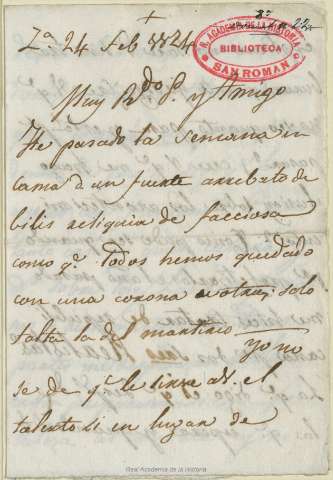 +
Za. 24 Feb 1824
R. ACADEMIA DE LA HISTORIA
BIBLIOTECA
SAN ROMAN
Muy Rdo. P. y Amigo
He pasado la semana en
cama d un fuerte arrebato de
bilis reliquia de facciosa
como q.e todos hemos quedado
con una corona u otra; solo
falta la del martirio
Yo no
se de q.e le sirve a V. el
talento si en lugar de
Real Academia de la Historia